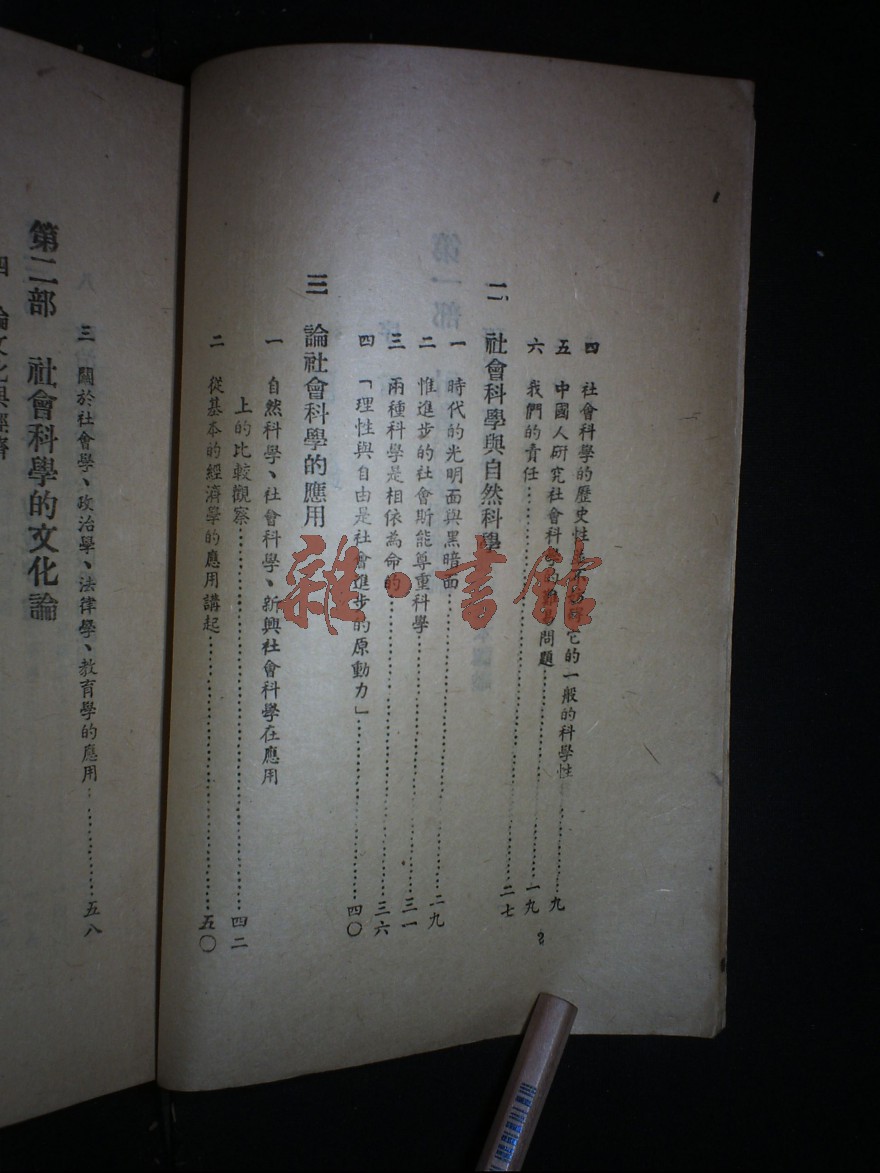 四 社會科學的歷史性 它的一般的科學性
五 中國人研究社會科學的 問題……九
六 我們的責任……一九
二 社會科學與自然科學……二七
一 時代的光明面與黑暗面……二九
二 惟進步的社會斯能尊重科學……三一
三 兩種科學是相依為命的……三六
四 「理性與自由是社會進步的原動力」……四〇
三 論社會科學的應用
一 自然科學、社會科學、新興社會科學在應用
上的比較觀察……四二
二 從基本的經濟學的應用講起……五〇
2
三 關於社會學、政治學、法律學、教育學的應用……五八
第二部 社會科學的文化論
四 論文化與經濟
雜·書館